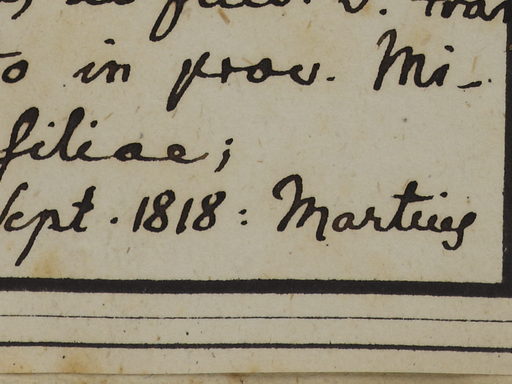 to in prov. Mi-
filiae;
Sept. 1818: Martius